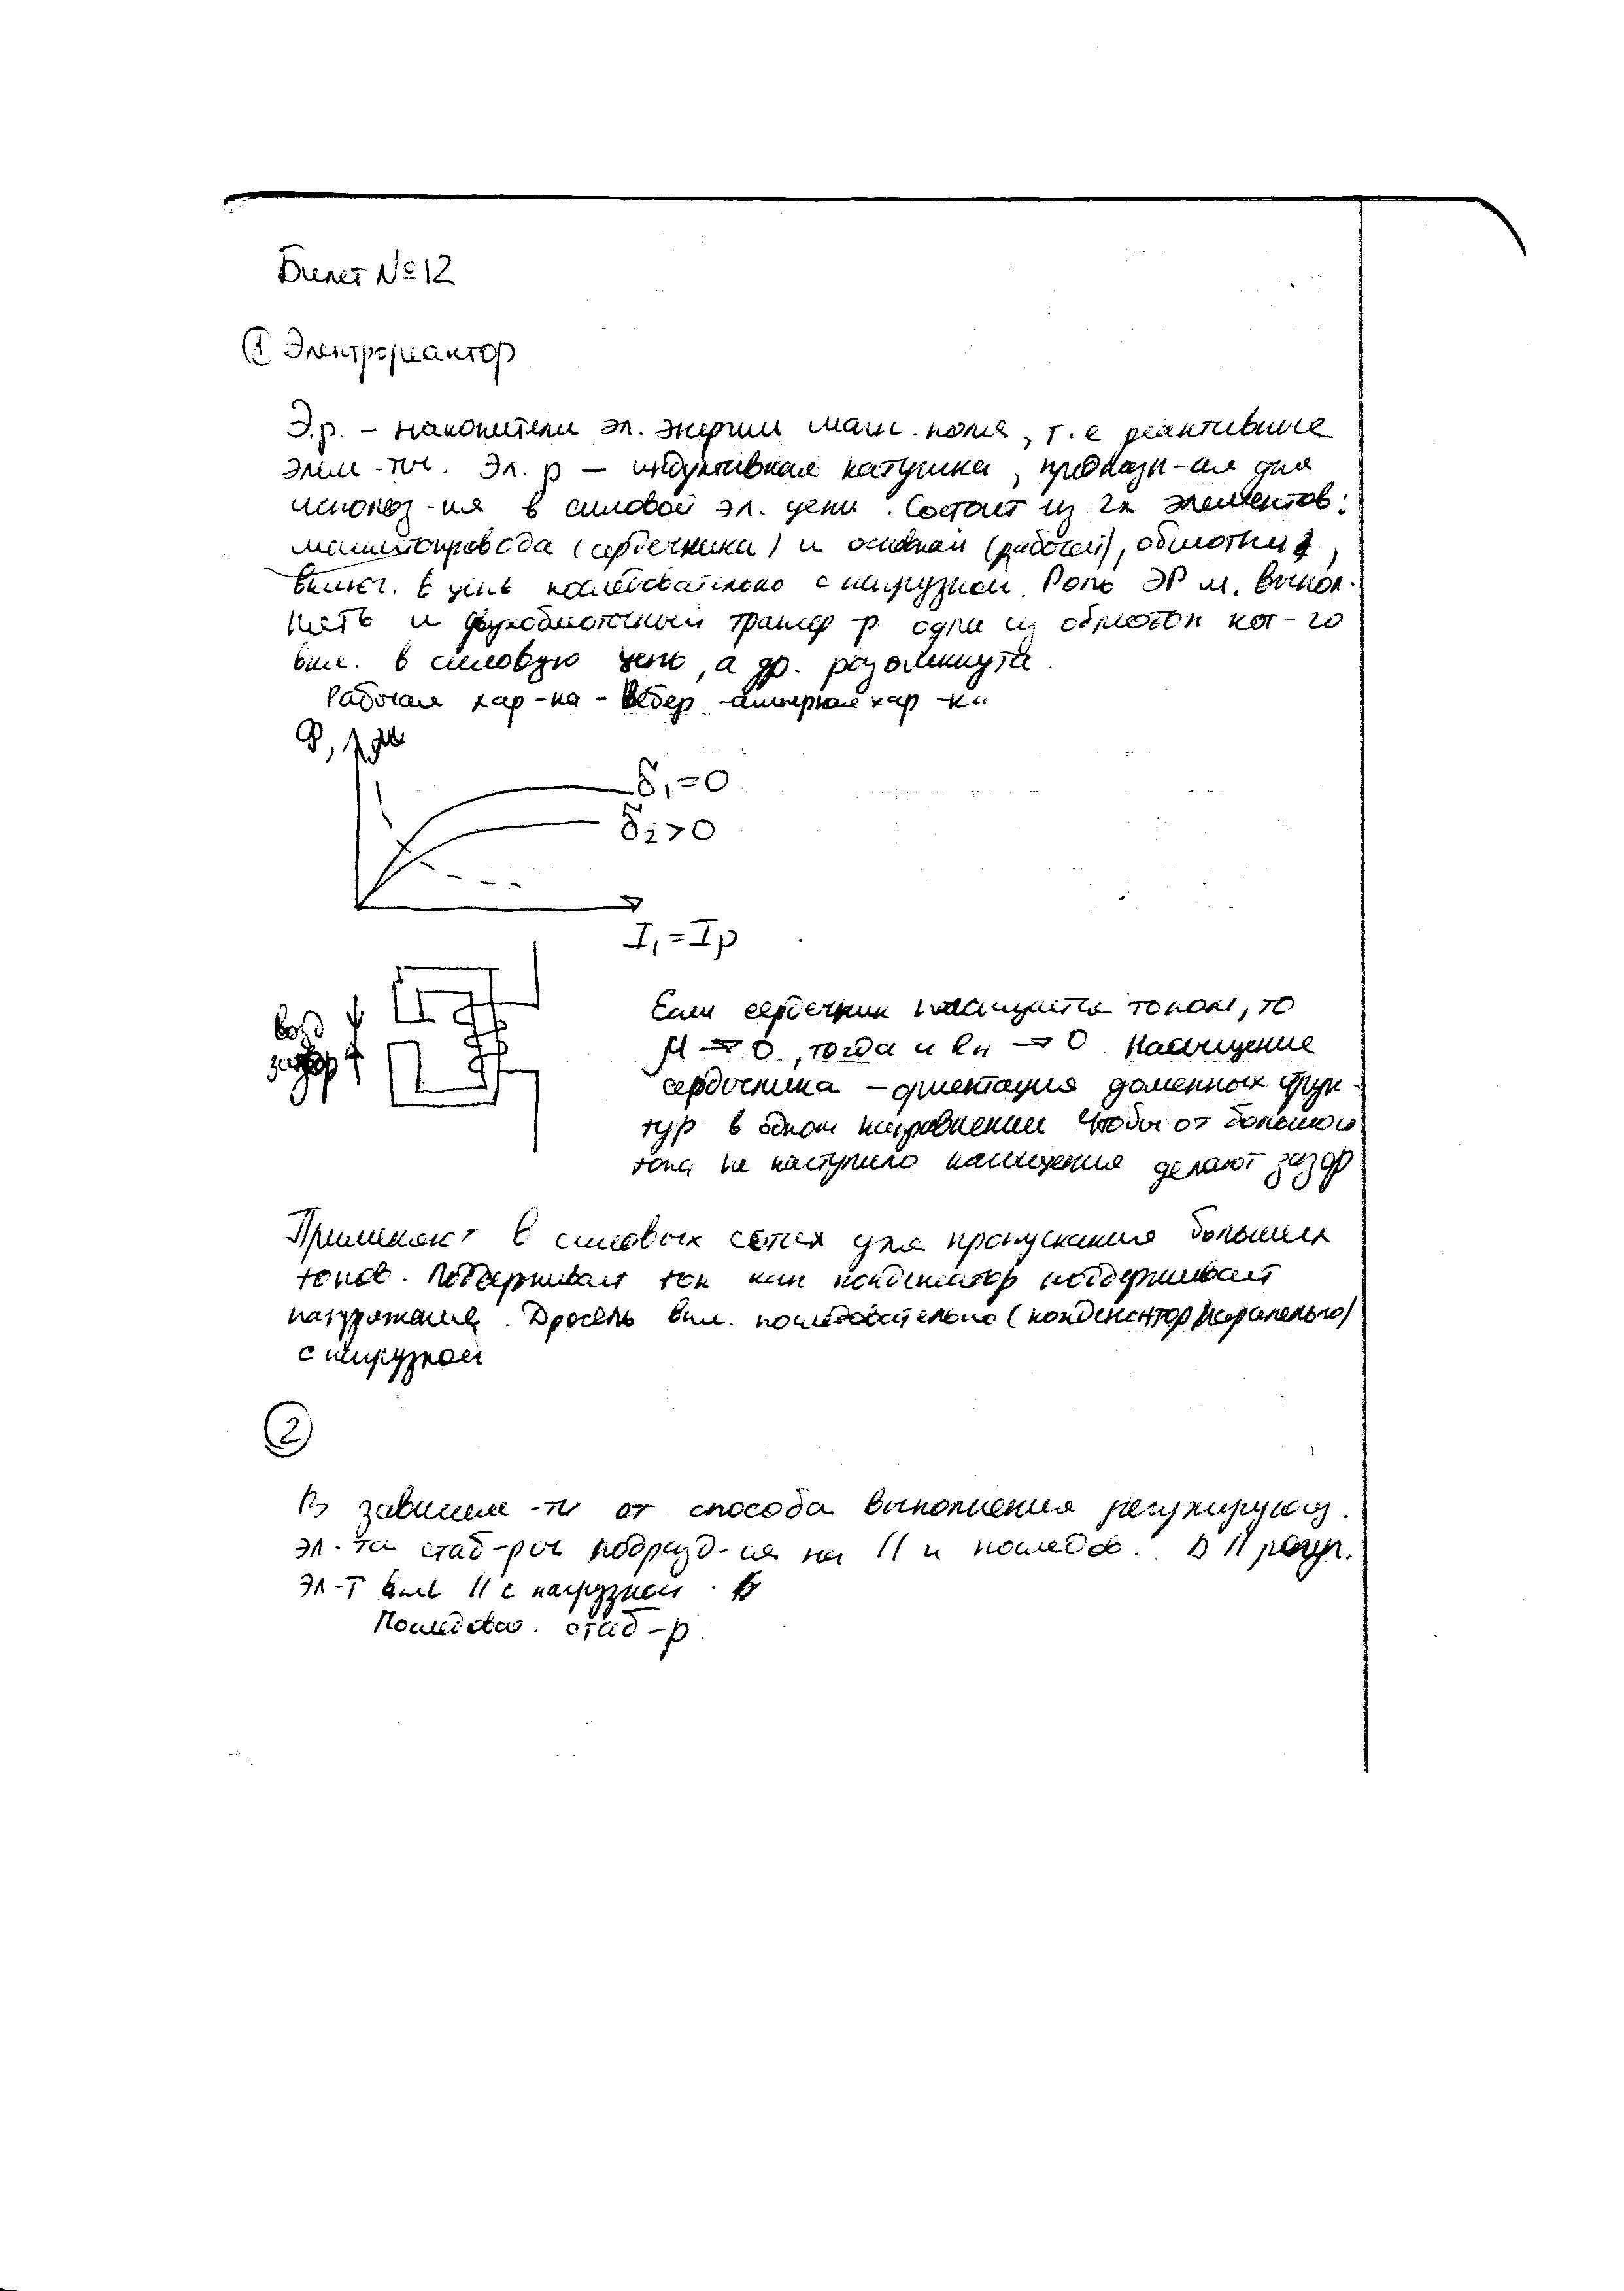 Билет №12
① Электрореактор
Э.р. – накопители эл. энергии магн. поля, т.е реактивные
элем-ты. Эл. р – индуктивная катушка, предназн-ая для
использ-ия в силовой эл. цепи. Состоит из 2х элементов:
магнитопровода (сердечника) и основной (рабочей), обмотки,
включ. в цепь последовательно с нагрузкой. Роль ЭР м. выпол-
нять и двухобмоточный трансф-р. одна из обмоток кот-го
вкл. в силовую цепь, а др. разомкнута.
Рабочая хар-ка - Вебер-амперная хар-ка
Φ,
δ₁=0
δ₂>0
I₁=Iр
возд
зазор
Если сердечник насыщается током, то
μ → 0, тогда и → 0. Насыщение
сердечника – ориентация доменных струк-
тур в одном направлении Чтобы от большого
тока не наступило насыщения делают зазор
Применяют в силовых сетях для пропускания больших
токов. Поддерживает ток как конденсатор поддерживает
напряжение. Дросель вкл. последовательно (конденсатор паралельно)
с нагрузкой
②
В зависим-ти от способа выполнения регулирующ.
эл-та стаб-ры подразд-ся на II и последов. В II регул.
эл-т вкл II с нагрузкой.
Последов. стаб-р.